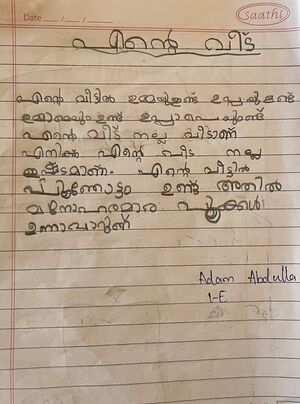 Saathi
Date ___ / ___ / ___
എന്റെ വീട്
എന്റെ വീട്ടിൽ ഉമ്മയുണ്ട് ഉപ്പയുണ്ട്
ഉണ്ട്
എന്റെ വീട് നല്ല വീടാണ്
എനിക്ക് എന്റെ വീട് നല്ല
ഇഷ്ടമാണ്. എന്റെ വീട്ടിൽ
പൂന്തോട്ടം ഉണ്ട് അതിൽ
മനോഹരമായ പൂക്കൾ
Adam Abdulla
1-E